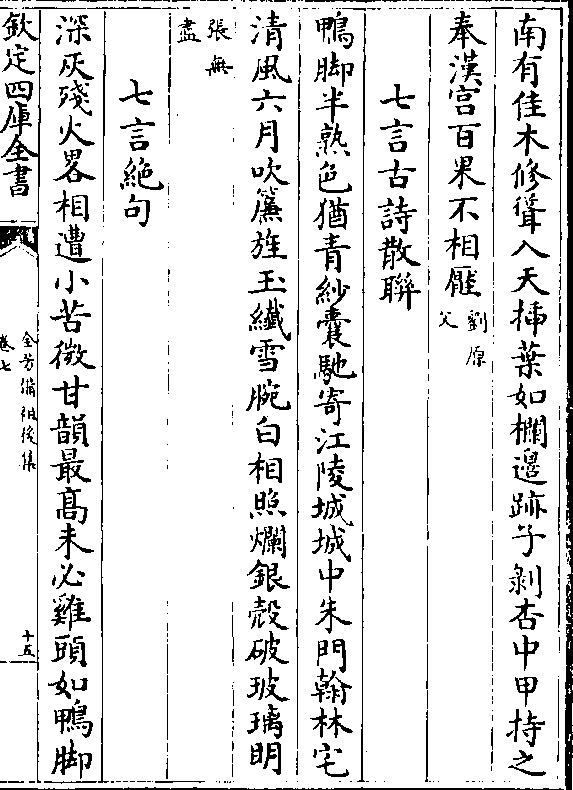 南有佳木修聳入天揷葉如欄邊跡子剝杏中甲持之
奉漢宫百果不相雁劉原
父
七言古詩散聯
鴨脚半熟色猶青紗囊馳寄江陵城城中朱門翰林宅
清風六月吹簾旌玉纎雪腕白相照爛銀殼破玻璃明
張無
盡
七言絶句
深灰殘火畧相遭小苦微甘韻最髙未必雞頭如鴨脚
欽定四庫全書
全芳備祖後集
卷七
十五